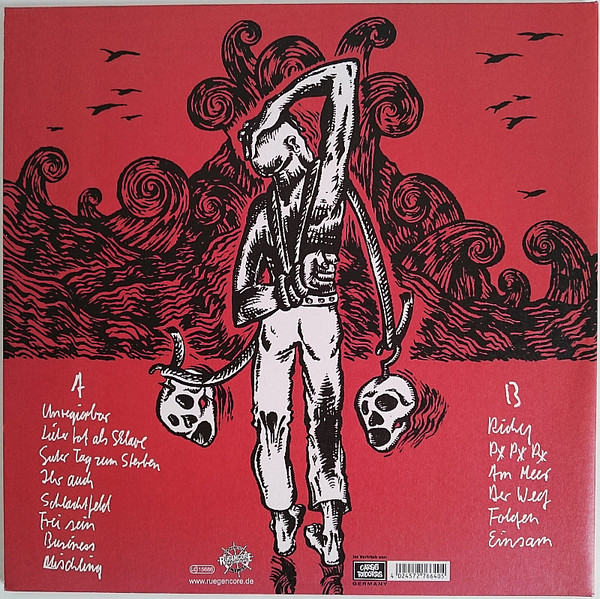 A
Unregierbar
Lieber tot als Sklave
Guter Tag zum Sterben
Ihr auch
Schlachtfeld
Frei sein
Business
Mischling
B
Px Px Px
Am Meer
Der Weg
Folgen
Einsam
LC 15686
RUEGENCORE
www.ruegencore.de
im Vertrieb von:
CARGO
RECORDS
GERMANY
4 024572 766405